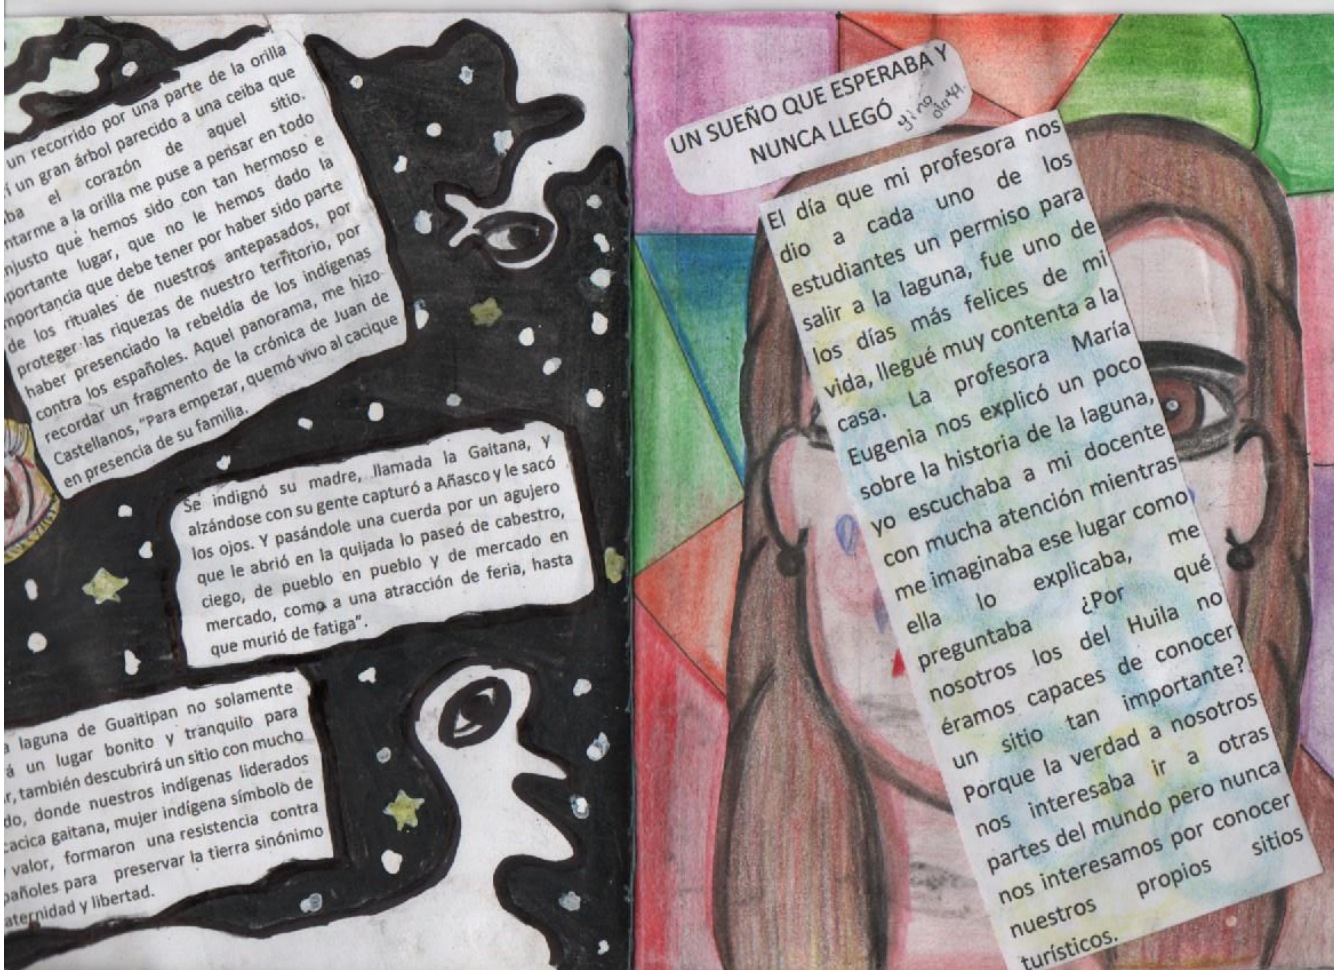 un recorrido por una parte de la orilla
í un gran árbol parecido a una ceiba que
ba el corazón de aquel sitio.
ntarme a la orilla me puse a pensar en todo
njusto que hemos sido con tan hermoso e
portante lugar, que no le hemos dado la
mportancia que debe tener por haber sido parte
de los rituales de nuestros antepasados, por
proteger las riquezas de nuestro territorio, por
haber presenciado la rebeldía de los indígenas
contra los españoles. Aquel panorama, me hizo
recordar un fragmento de la crónica de Juan de
Castellanos, "Para empezar, quemó vivo al cacique
en presencia de su familia.
Se indignó su madre, llamada la Gaitana, y
alzándose con su gente capturó a Añasco y le sacó
los ojos. Y pasándole una cuerda por un agujero
que le abrió en la quijada lo paseó de cabestro,
ciego, de pueblo en pueblo y de mercado en
mercado, como a una atracción de feria, hasta
que murió de fatiga".
a laguna de Guaitipan no solamente
á un lugar bonito y tranquilo para
r, también descubrirá un sitio con mucho
do, donde nuestros indígenas liderados
cacica gaitana, mujer indígena símbolo de
valor, formaron una resistencia contra
pañoles para preservar la tierra sinónimo
aternidad y libertad.
UN SUEÑO QUE ESPERABA Y
NUNCA LLEGÓ
El día que mi profesora nos
dio a cada uno de los
estudiantes un permiso para
salir a la laguna, fue uno de
los días más felices de mi
vida, llegué muy contenta a la
casa. La profesora María
Eugenia nos explicó un poco
sobre la historia de la laguna,
yo escuchaba a mi docente
con mucha atención mientras
me imaginaba ese lugar como
ella lo explicaba, me
preguntaba ¿Por qué
nosotros los del Huila no
éramos capaces de conocer
un sitio tan importante?
Porque la verdad a nosotros
nos interesaba ir a otras
partes del mundo pero nunca
nos interesamos por conocer
nuestros propios sitios
turísticos.